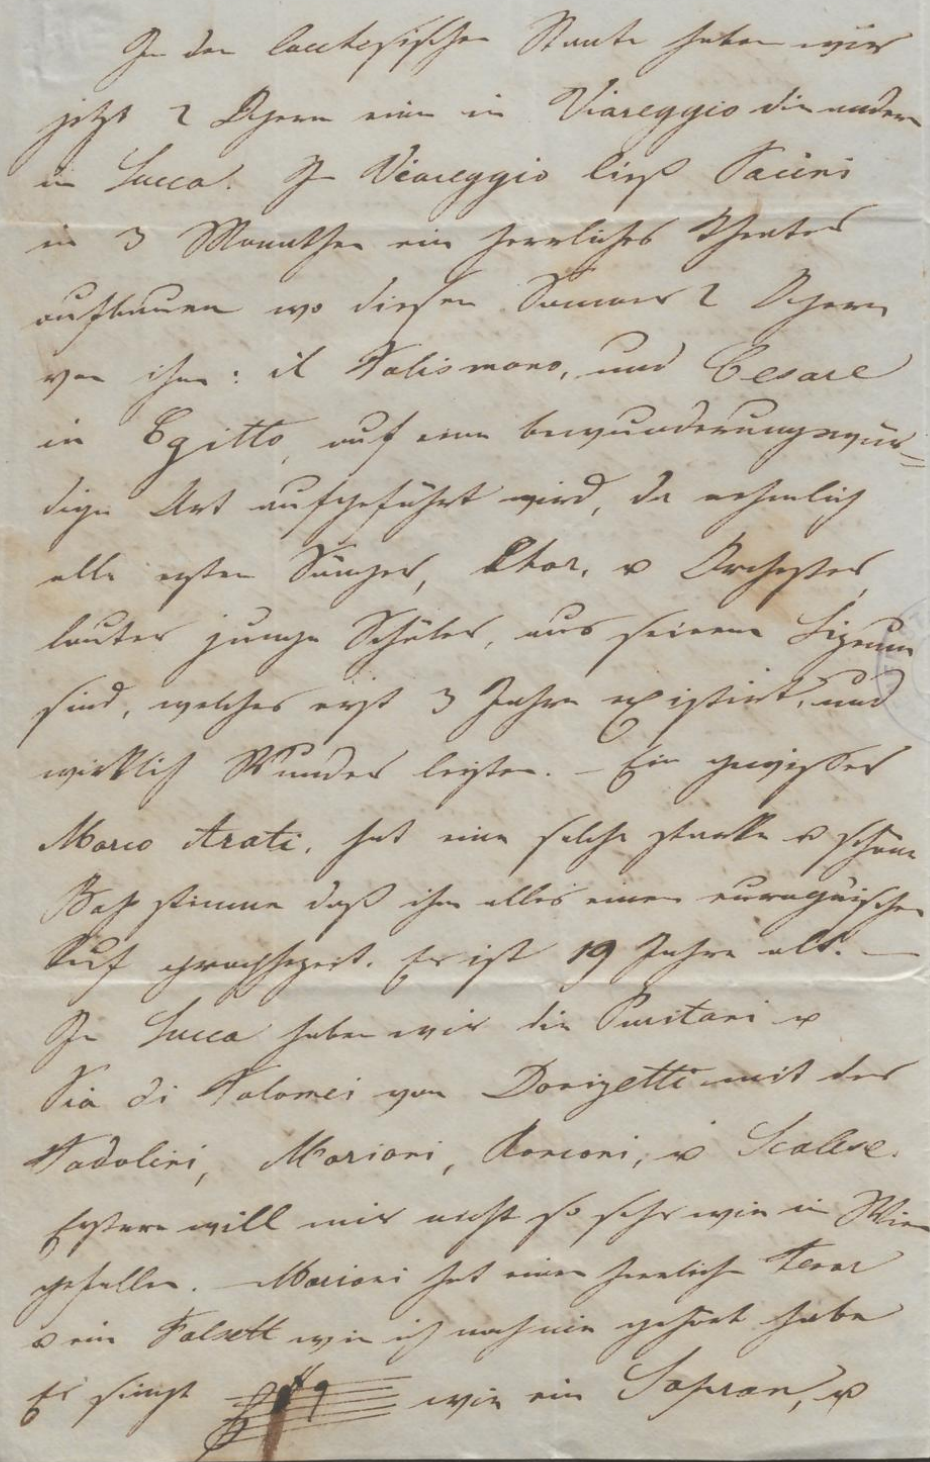 In den lucchesischen Staate haben wir
jetzt 2 Opern eine in Viareggio die andere
in Lucca. In Viareggio ließ Pacini
in 3 Monathen ein herrliches Theater
aufbauen wo diesen Sommer 2 Opern
von ihm: il Talismano, und Cesare
in Egitto, auf eine bewunderungswür=
dige Art aufgeführt wird, da nehmlich
alle ersten Sänger, Chor, u Orchester,
lauter junge Schüler, aus seinem Lizeum
sind, welches erst 3 Jahre existirt, und
wirklich Wunder leisten. – Ein gewisser
Marco Arati, hat eine solche starke u schöne
Baßstimme daß ihm alles einen europäischen
Ruf prophezeit. Er ist 19 Jahre alt. —
In Lucca haben wir die Puritani u
Pia di Tolomei von Donizetti mit der
Tadolini, Moriani, Ronconi, u Scalese.
Erstere will mir nicht so sehr wie in Wien
gefallen. – Moriani hat einen herrlichen Tenor
u ein Falsett wie ich noch nie gehört habe
Er singt wie ein Sopran, u